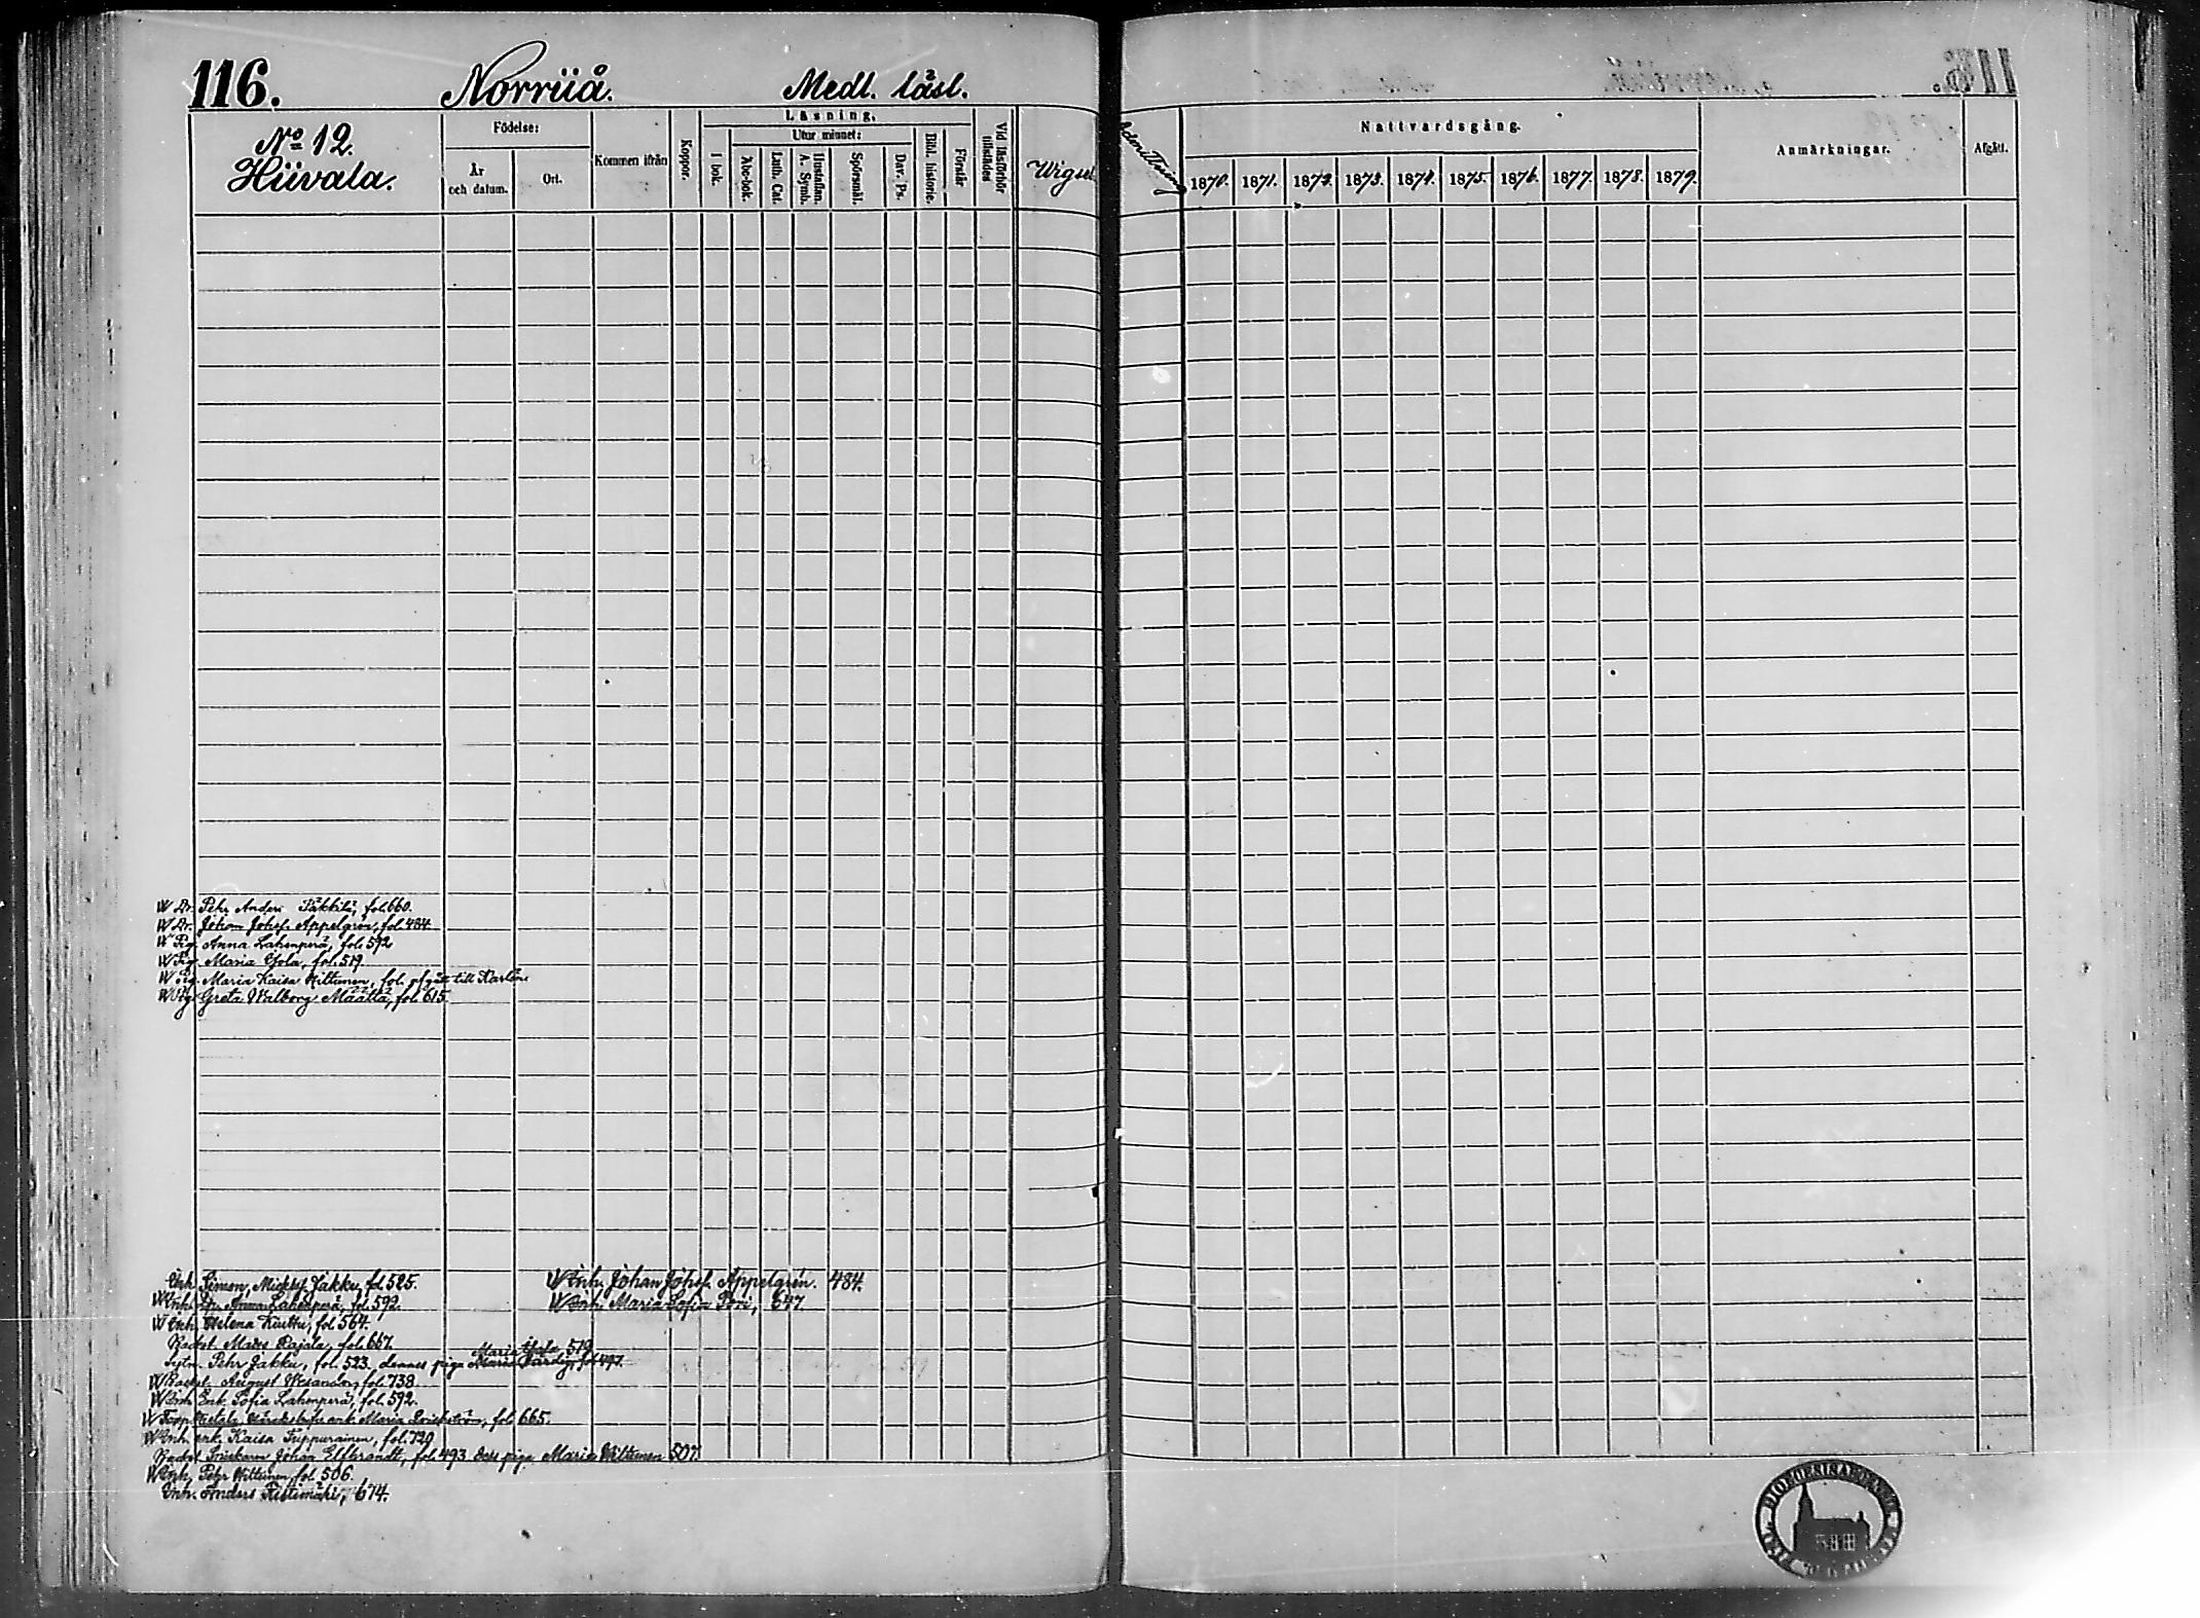 116. Norriiå. Medl. läsl.
No 12.
Hiivala.
Födelse:
År och datum.
Ort.
Kommen ifrån
Koppor.
Läsning.
I bok.
Utur minnet:
Abc-bok.
Luth. Cat.
Hustaflan. A. Symb.
Spörsmål.
Dav. Ps.
Bibl. historie.
Förstår
Vid läsförhör tillstädes
Admitterg
Nattvardsgång.
1870. 1871. 1872. 1873. 1874. 1875. 1876. 1877. 1878. 1879.
Anmärkningar.
Afgått.
W Dr. Pehr Anders Päkkilä, fol. 660.
W Dr. Johan Johsf. Appelgrén, fol. 484
W Pig. Anna Lahenperä, fol. 592
W Pig. Maria Ojola, fol. 519
W Pig. Maria Kaisa Hiltunen, fol. afgått till Karlön.
W Pig. Greta Walborg Määttä, fol. 615.
Inh. Simon, Mickelf. Jakku, fol. 525.
W Inh. Anna Lahenperä, fol. 592.
W Inh. Helena Kuittu, fol. 564.
Backst. Matts Rajala, fol. 667.
Sytn. Pehr Jakku, fol. 523. dennes piga Maria 519
fol. 497.
W Backst. August Wesander, fol. 738.
W Inh. Enk. Sofia Lahenperä, fol. 592.
W Torp enk. Maria fol. 665.
W Inh. enk. Kaisa Tuppurainen, fol. 729
Backst. Snickaren Johan Elfbrandt, fol. 493. dess piga Maria Hiltunen 507.
W Inh. Pehr Hiltunen, fol. 506.
Inh. Anders Ristimäki, 674.
W Inh. Johan Johsf. Appelgrén. 484.
W Inh. Maria Sofia Pori, 647.